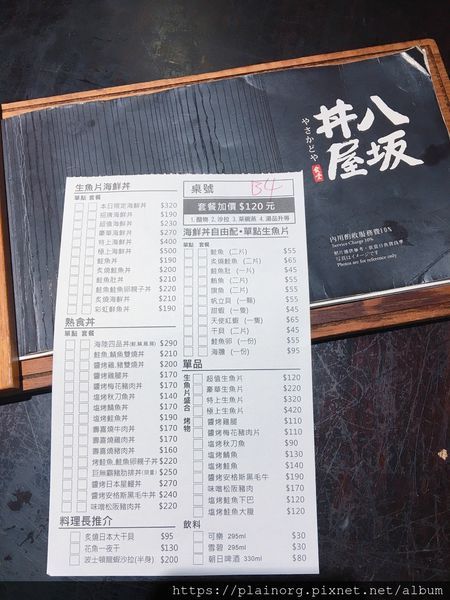 八坂
丼屋
やさかどや
食堂
內用酌收服務費10%
Service Charge 10%
Photos are for reference only
生魚片海鮮丼
單點 套餐
本日限定海鮮丼 $320
招牌海鮮丼 $190
超值海鮮丼 $230
豪華海鮮丼 $270
特上海鮮丼 $340
極上海鮮丼 $500
鮭魚丼 $190
炙燒鮭魚丼 $200
鮭魚肚丼 $210
鮭魚鮭魚卵親子丼 $220
炙燒海鮮丼 $210
彩虹鮮魚丼 $190
熱食丼
單點 套餐
海陸四品丼 $290
鮭魚,鯖魚雙燒丼 $210
醬烤雞,豬雙燒丼 $200
醬烤雞腿丼 $170
醬烤梅花豬肉丼 $170
塩烤秋刀魚丼 $140
塩烤鯖魚丼 $170
塩烤鮭魚丼 $190
壽喜燒牛肉丼 $170
壽喜燒雞肉丼 $160
壽喜燒豬肉丼 $160
烤鮭魚,鮭魚卵親子丼 $220
巨無霸豬肋排丼(限量) $250
醬烤日本星鰻丼 $270
醬烤安格斯黑毛牛丼 $240
味噌松阪豬丼 $220
料理長推介
炙燒日本大干貝 $95
花魚一夜干 $130
波士頓龍蝦沙拉(半身) $200
桌號 B4
套餐加價 $120 元
1.醋物 2.沙拉 3.茶碗蒸 4.湯品升等
海鮮丼自由配•單點生魚片
單點 套餐
鮭魚 (二片) $55
炙燒鮭魚 (二片) $65
鮭魚肚 (一片) $45
鮪魚 (二片) $55
旗魚 (二片) $55
帆立貝 (一顆) $45
甜蝦 (一隻) $45
天使紅蝦 (一隻) $65
干貝 (二片) $45
鮭魚卵 (一份) $55
海膽 (一份) $95
單品
生魚片盛合
超值生魚片 $120
豪華生魚片 $220
特上生魚片 $320
極上生魚片 $420
烤物
醬烤雞腿 $110
醬烤梅花豬肉片 $110
塩烤秋刀魚 $90
塩烤鯖魚 $130
塩烤鮭魚 $140
醬烤安格斯黑毛牛 $190
味噌松阪豬肉 $170
塩烤鮭魚下巴 $120
塩烤鮭魚大腹 $120
飲料
可樂 295ml $30
雪碧 295ml $30
朝日啤酒 330ml $80
https://plainorg.pixnet.net/album